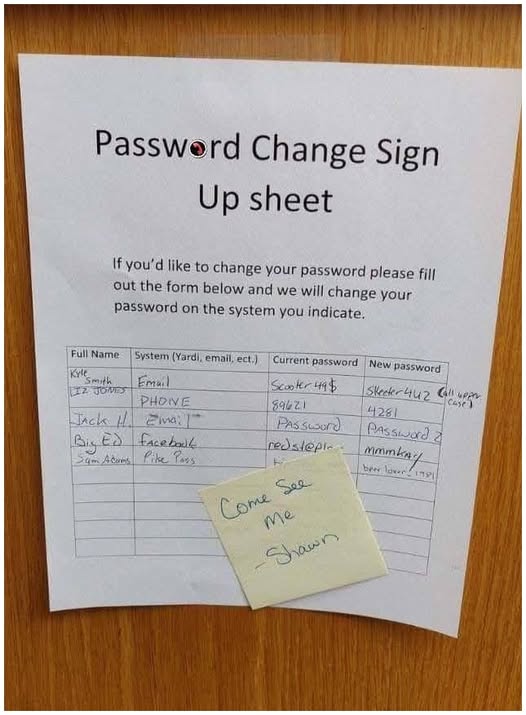 Password Change Sign
Up sheet
If you'd like to change your password please fill
out the form below and we will change your
password on the system you indicate.
Full Name System (Yardi, email, ect.) Current password New password
Kyle Smith Email Scooter49$ Skeeter442 (all upper case)
Liz Jones PHONE 89621 4281
Jack H. Email Password Password 2
Big Ed facebook mmmkay
Sam Adams Pike Pass beer lover 1981
Come See
Me
- Shawn